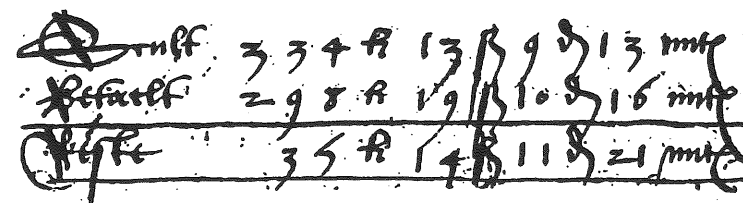 Scult 334 lb 13 ß 9 d 13 mite
Betaelt 298 lb 19 ß 10 d 16 mite
Reste 35 lb 14 ß 11 d 21 mite